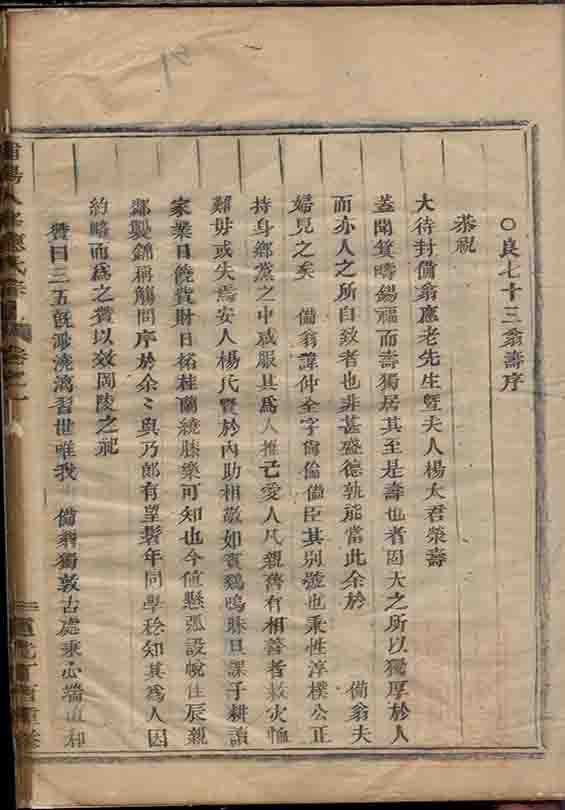 ○良七十三翁壽序
恭祝
大待封備翁應老先生暨夫人楊太君榮壽
蓋聞箕疇錫福而壽獨居其至是壽也者固天之所以獨厚於人
而亦人之所自致者也非甚盛德孰能當此余於 備翁夫
婦見之矣 備翁諱仲全字尚倫備臣其別號也秉性淳樸公正
持身鄉黨之中咸服其為人推己愛人凡親舊有相善者救灾恤
難毋或失焉安人楊氏賢於內助相敬如賓鷄鳴昧旦課子耕讀
家業日饒貲財日拓桂蘭繞膝樂可知也今值懸弧設帨佳辰親
鄰製錦稱觴問序於余〻與乃郎有望髫年同學稔知其為人因
約略而為之贊以效岡陵之祝
贊曰三五旣渺澆漓習世唯我 備翁獨敦古處秉心端直和
應氏宗 卷之一